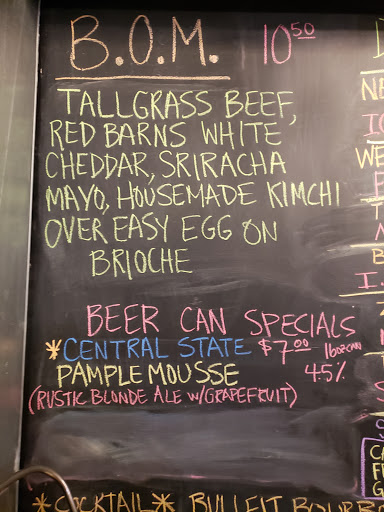 B.O.M. 10.50
TALLGRASS BEEF,
RED BARNS WHITE
CHEDDAR, SRIRACHA
MAYO, HOUSEMADE KIMCHI
OVER EASY EGG ON
BRIOCHE
BEER CAN SPECIALS
*CENTRAL STATE $7.00 16oz can
PAMPLEMOUSSE 4.5%
(RUSTIC BLONDE ALE W/GRAPEFRUIT)
*COCKTAIL* BULLEIT BOURB